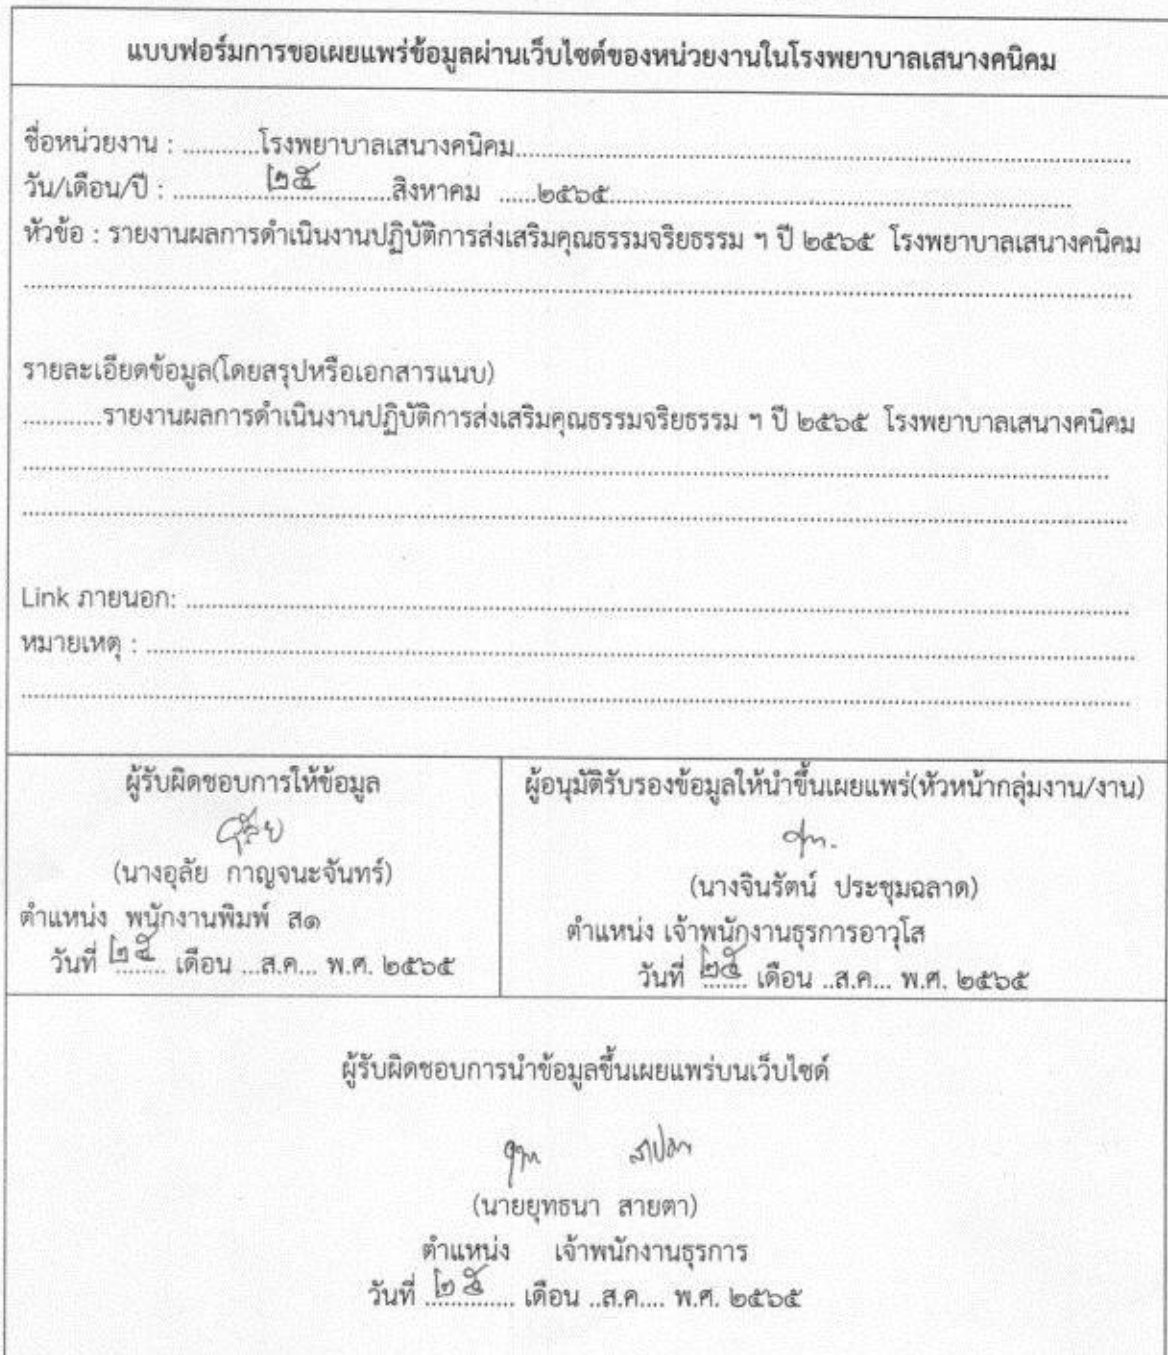 แบบฟอร์มการขอเผยแพร่ข้อมูลผ่านเว็บไซต์ของหน่วยงานในโรงพยาบาลเสนางคนิคม
ชื่อหน่วยงาน : ............โรงพยาบาลเสนางคนิคม............
วัน/เดือน/ปี : ............๒๕............สิงหาคม ......๒๕๖๕............
หัวข้อ : รายงานผลการดำเนินงานปฏิบัติการส่งเสริมคุณธรรมจริยธรรม ฯ ปี ๒๕๖๕ โรงพยาบาลเสนางคนิคม
รายละเอียดข้อมูล(โดยสรุปหรือเอกสารแนบ)
............รายงานผลการดำเนินงานปฏิบัติการส่งเสริมคุณธรรมจริยธรรม ฯ ปี ๒๕๖๕ โรงพยาบาลเสนางคนิคม
Link ภายนอก: ............
หมายเหตุ : ............
ผู้รับผิดชอบการให้ข้อมูล
(นางอุลัย กาญจนะจันทร์)
ตำแหน่ง พนักงานพิมพ์ ส๑
วันที่ ๒๕ เดือน ...ส.ค... พ.ศ. ๒๕๖๕
ผู้อนุมัติรับรองข้อมูลให้นำขึ้นเผยแพร่(หัวหน้ากลุ่มงาน/งาน)
(นางจินรัตน์ ประชุมฉลาด)
ตำแหน่ง เจ้าพนักงานธุรการอาวุโส
วันที่ ๒๕ เดือน ..ส.ค... พ.ศ. ๒๕๖๕
ผู้รับผิดชอบการนำข้อมูลขึ้นเผยแพร่บนเว็บไซด์
(นายยุทธนา สายตา)
ตำแหน่ง เจ้าพนักงานธุรการ
วันที่ ๒๕ เดือน ..ส.ค.... พ.ศ. ๒๕๖๕